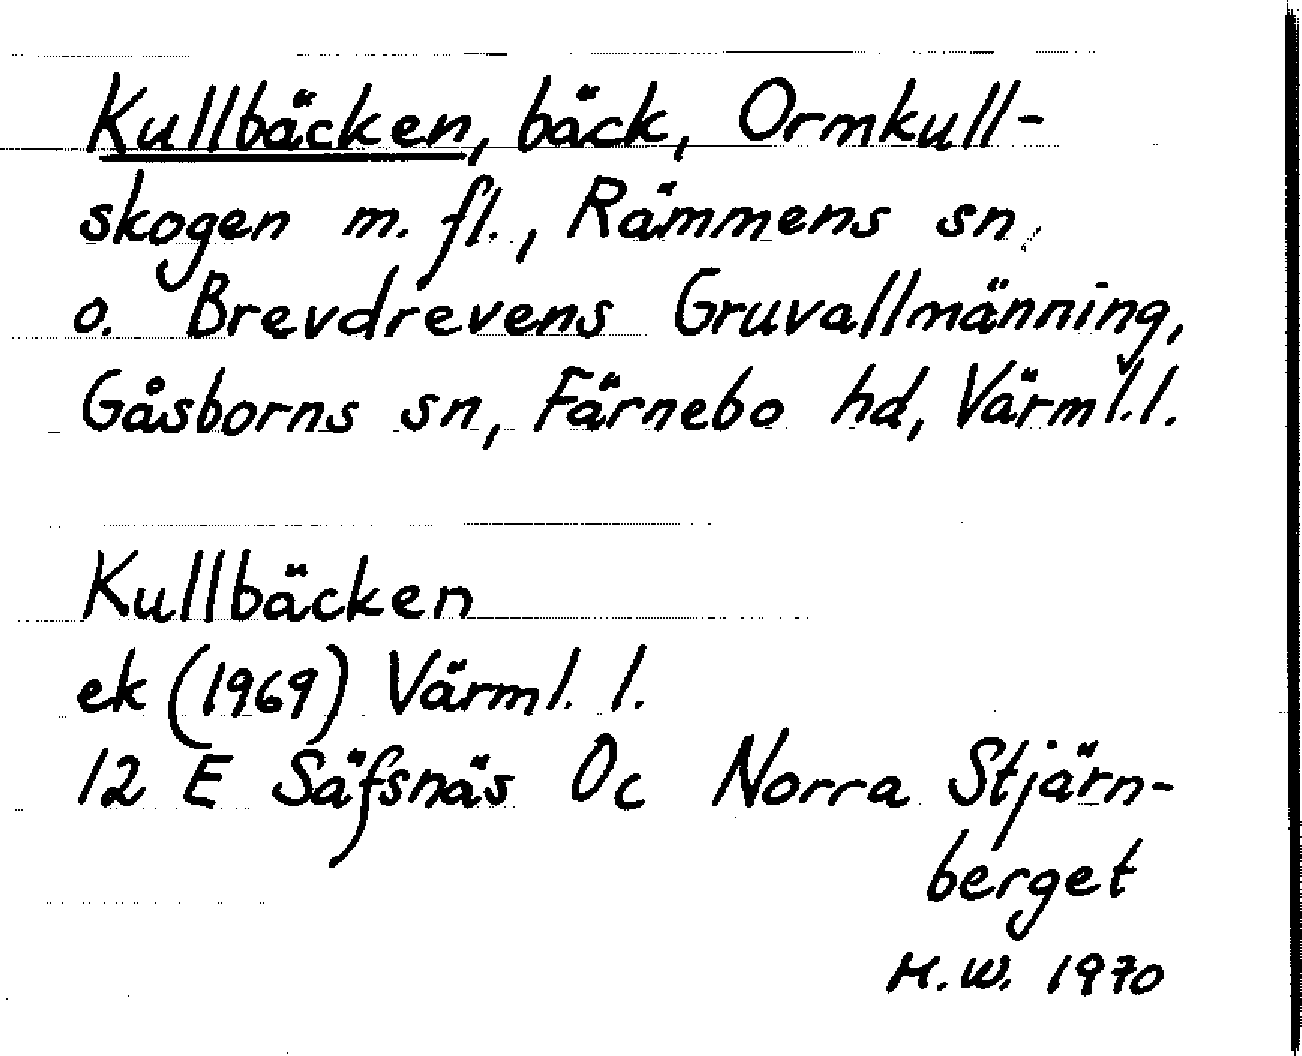 Kullbäcken, bäck, Ormkull-
skogen m. fl., Rämmens sn,
o. Brevdrevens Gruvallmänning,
Gåsborns sn, Färnebo hd, Värml.l.
Kullbäcken
ek (1969) Värml. l.
12 E Säfsnäs 0c Norra Stjärn-
berget
M.W. 1970